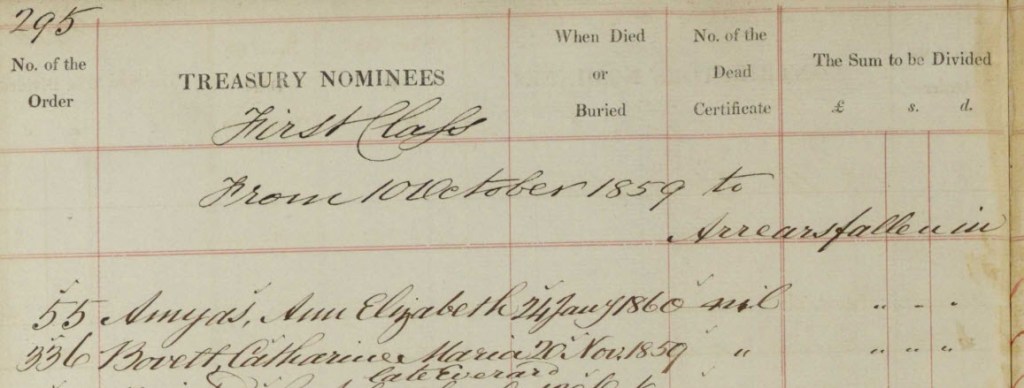 295
No. of the Order
TREASURY NOMINEES
First Class
When Died or Buried
No. of the Dead Certificate
The Sum to be Divided
£ s. d.
From 10 October 1859 to
Arrears fallen in
55 Amyas, Ann Elizabeth 24 Jany 1860 nil " " "
336 Bovett, Catharine Maria 20 Nov. 1859 " " " "
late Everard